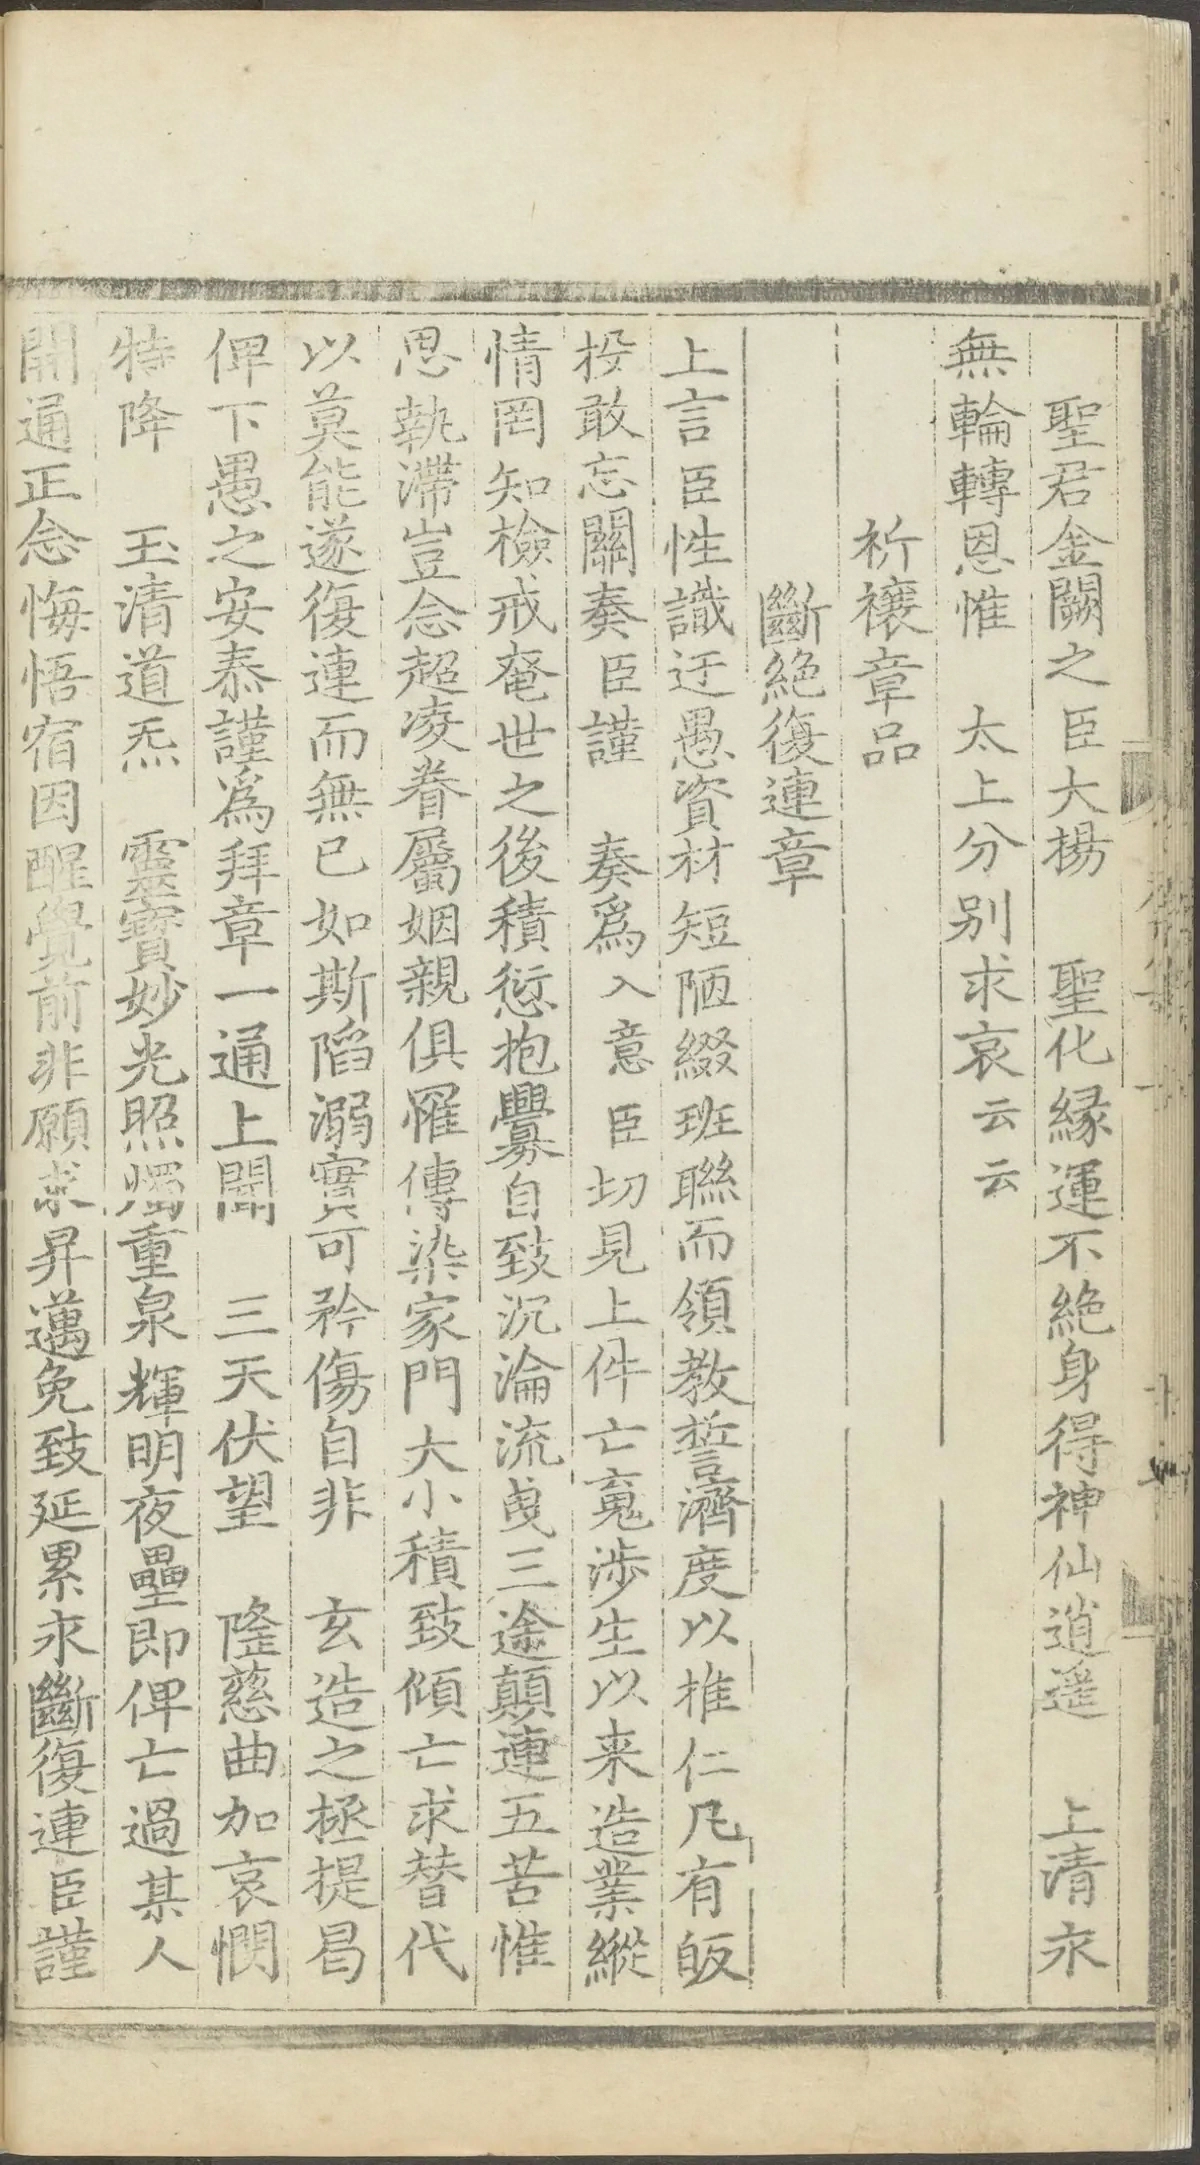 聖君金闕之臣大揚　聖化縁運不絶身得神仙逍遥　上清永
無輪轉恩惟　太上分别求哀云云
祈禳章品
斷絶復連章
上言臣性識迂愚資材短陋綴班聯而領教誓濟度以推仁凡有皈
投敢忘關奏臣謹　奏爲入意臣切見上件亡䰟渉生以来造業縱
情罔知檢戒奄世之後積愆抱釁自致沉淪流曵三途顛連五苦惟
思執滯豈念超凌眷屬姻親俱罹傳染家門大小積致傾亡求替代
以莫能遂復連而無已如斯陷溺實可矜傷自非　玄造之拯提曷
俾下愚之安泰謹爲拜章一通上聞　三天伏望　隆慈曲加哀憫
特降　玉清道炁　靈寶妙光照燭重泉輝明夜壘即俾亡過某人
開通正念悔悟宿因醒覺前非願求昇邁免致延累永斷復連臣謹